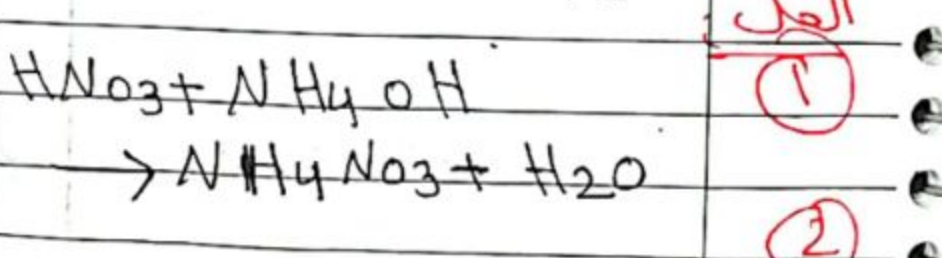 الحل
HNO3 + NH4OH
①
→ NH4NO3 + H2O
②